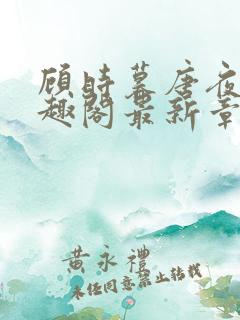 顾时幕唐夜
趣阁最新章
黄永禮
未经同意禁止转载